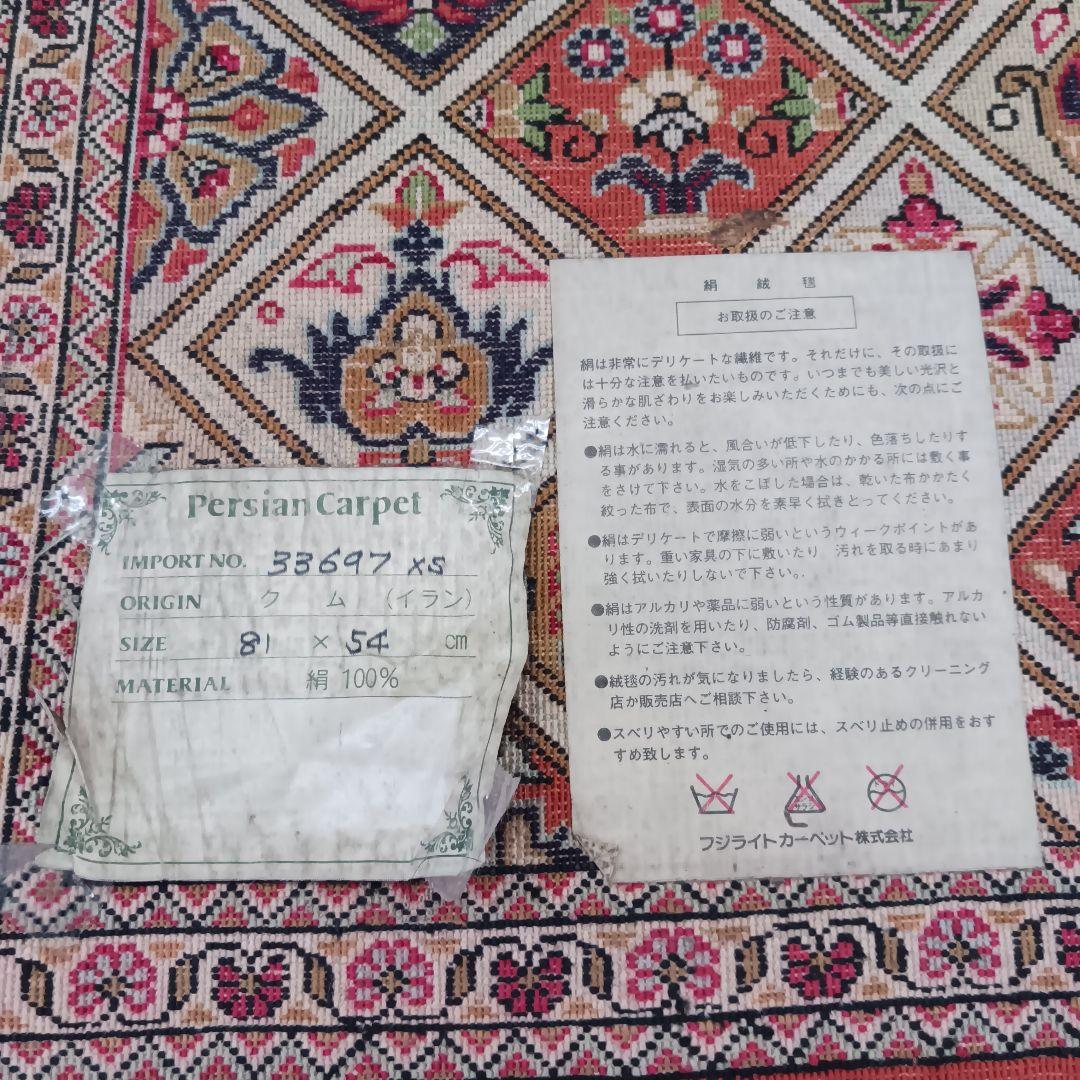 Persian Carpet
IMPORT NO. 33697 XS
ORIGIN クム (イラン)
SIZE 81 × 54 cm
MATERIAL 絹 100%
絹絨毯
お取扱のご注意
絹は非常にデリケートな繊維です。それだけに、その取扱に
は十分な注意を払いたいものです。いつまでも美しい光沢と
滑らかな肌ざわりをお楽しみいただくためにも、次の点にご
注意ください。
●絹は水に濡れると、風合いが低下したり、色落ちしたりす
る事があります。湿気の多い所や水のかかる所には敷く事
をさけて下さい。水をこぼした場合は、乾いた布かかたく
絞った布で、表面の水分を素早く拭きとってください。
●絹はデリケートで摩擦に弱いというウィークポイントがあ
ります。重い家具の下に敷いたり 汚れを取る時にあまり
強く拭いたりしないで下さい。
●絹はアルカリや薬品に弱いという性質があります。アルカ
リ性の洗剤を用いたり、防腐剤、ゴム製品等直接触れない
ようにご注意下さい。
●絨毯の汚れが気になりましたら、経験のあるクリーニング
店か販売店へご相談下さい。
●スベリやすい所でのご使用には、スベリ止めの併用をおす
すめ致します。
フジライトカーペット株式会社